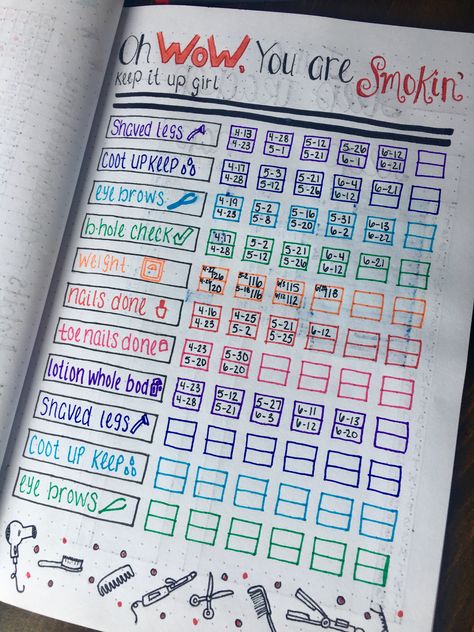 Oh WOW! You are Smokin'
keep it up girl
Shaved legs
4-13 4-28 5-12 5-26 6-12
4-23 5-1 5-21 6-1 6-21
Coot upkeep
4-17 5-3 5-21 6-4 6-21
4-28 5-12 5-26 6-12
eye brows
4-19 5-2 5-16 5-31 6-13
4-23 5-8 5-20 6-2 6-22
b.hole check
4-17 5-2 5-21 6-4 6-21
4-28 5-12 5-26 6-12
weight
5-2 116 6/3 115
5-18 116 6/12 112
nails done
4-16 4-25 5-21 6-12
4-23 5-2 5-25
toe nails done
4-23 5-30
5-20 6-20
lotion whole bod
4-23 5-12 5-27 6-11 6-13
4-28 5-21 6-3 6-12 6-20
Shaved legs
Coot up keep
eye brows